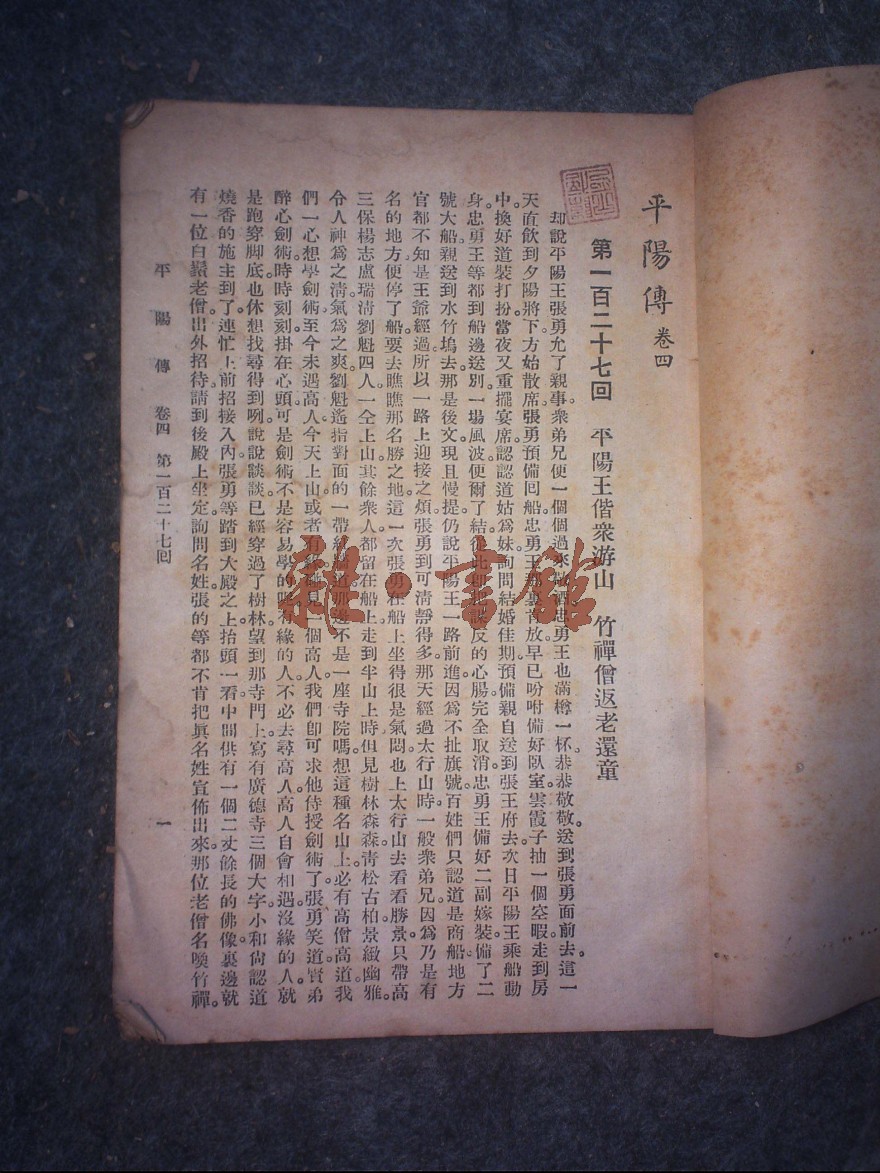 平陽傳 卷四
第一百二十七回 平陽王偕衆游山 竹禪僧返老還童
却說平陽王張勇允了親事衆弟兄便一個個過來敬酒忠勇王也滿樽一杯。恭恭敬敬。送到張勇面前去。這一
天直飲到夕陽將下方始散席張勇預備回船忠勇王那裏肯放早已吩咐備好臥室雲霞子抽一個空暇走到房
中。換好道裝打扮當夜又重擺宴席。認認道姑爲妹詢問結婚佳期。預備親自送到張王府去。次日平陽王乘船動
身。忠勇王等都到船邊送別一場風波便爾了結從此謀反的心腸完全取消。忠勇王備好二副嫁裝。備了二
號大船親送到水竹塢去那是後文現且慢提仍說平陽王一路前進因爲不扯旗號百姓們只認道是商船地方
官都不知是王爺經過所以一路上迎接之煩張勇到可清靜得多。那天經過太行山時。一般衆弟兄。因爲乃是有
名的地方便停了船要去瞧瞧那名勝之地這一次張勇在船上坐得很是氣悶也上太行山去看看勝景只帶高
三保楊志盧瑞清劉魁四人一仝上山其餘衆人都留在船上走到半山上時。但見樹林森森。青松古柏。景緻幽雅。
令人神爲之清氣爲之爽劉魁遙指對面的一帶 那邊不是一座寺院嗎。想這種名山上。必有高僧高道。我
們一心想學劍術。至今未遇高人今天上山或者有 見一個高人。我們卽可求他侍授劍術了。張勇笑道。賢弟
醉心劍術。時時刻刻。掛在心頭。可是劍術不是容易學的呢有緣的人。不必去尋高人。高人自會相遇。沒緣的人。就
是跑穿脚底。也休想找尋得到咧。說說談談。已經穿過了樹林。望到那寺門上。寫有廣德寺三個大字小和尙認道
燒香的施主到了。連忙上前招接入內。張勇等踏到大殿之上。抬頭一看。中間供有一個二丈餘長的佛像。裏邊就
有一位白鬚老僧。出外招待請到後殿上坐定。詢問名姓。張的等都不肯把眞名姓宣佈出來。那位老僧名喚竹禪。
平陽傳 卷四 第一百二十七回 一
雜·書館